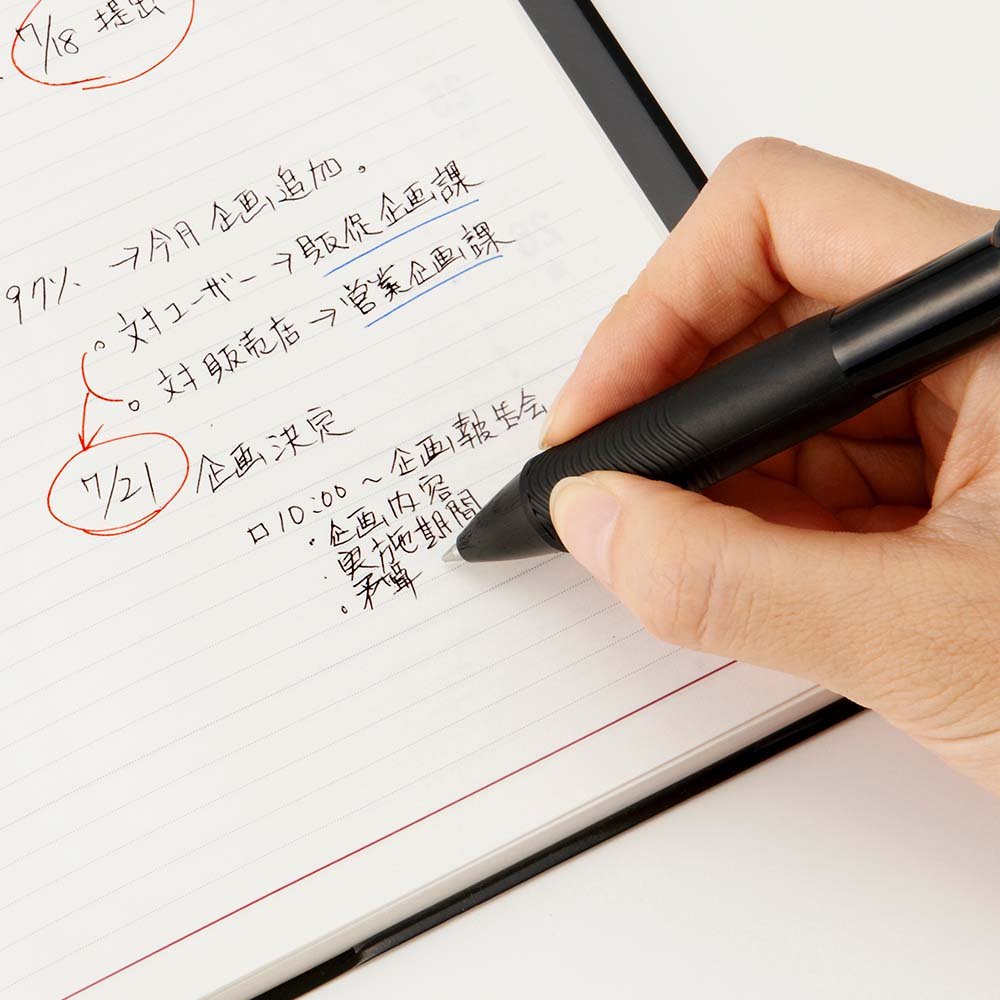 7/18 提出
97% →今月企画追加。
。対ユーザー→販促企画課
。対販売店→営業企画課
7/21 企画決定
□10:00～企画報告会
・企画内容
・実施期間
。予算